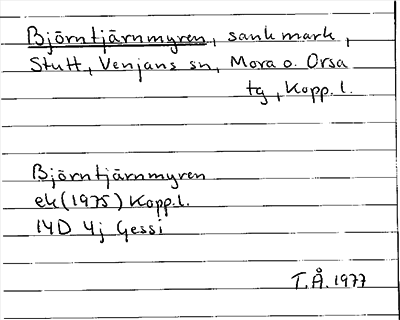 Björntjärnmyren, sank mark,
Stutt, Venjans sn, Mora o. Orsa
tg, Kopp. l.
Björntjärnmyren
ek (1975) Kopp.l.
14D 4j Gessi
T.Å. 1977